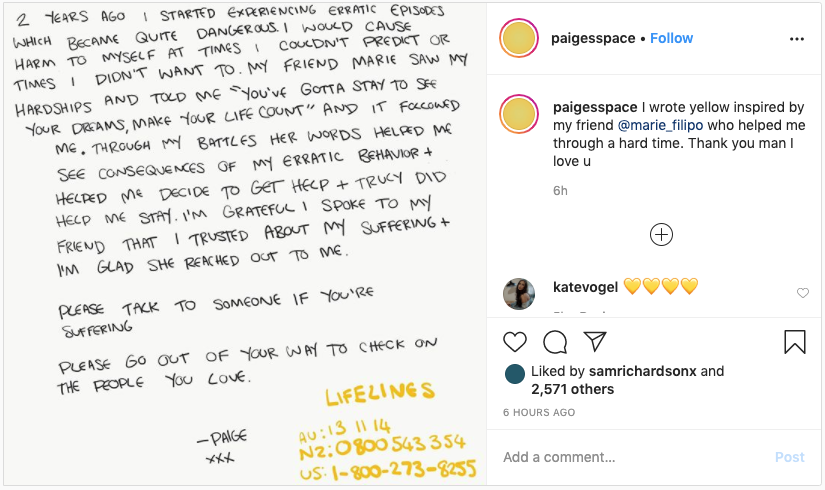 2 YEARS AGO I STARTED EXPERIENCING ERRATIC EPISODES
WHICH BECAME QUITE DANGEROUS. I WOULD CAUSE
HARM TO MYSELF AT TIMES I COULDN'T PREDICT OR
TIMES I DIDN'T WANT TO. MY FRIEND MARIE SAW MY
HARDSHIPS AND TOLD ME "YOU'VE GOTTA STAY TO SEE
YOUR DREAMS, MAKE YOUR LIFE COUNT" AND IT FOLLOWED
ME. THROUGH MY BATTLES HER WORDS HELPED ME
SEE CONSEQUENCES OF MY ERRATIC BEHAVIOR +
HELPED ME DECIDE TO GET HELP + TRULY DID
HELP ME STAY. I'M GRATEFUL I SPOKE TO MY
FRIEND THAT I TRUSTED ABOUT MY SUFFERING +
I'M GLAD SHE REACHED OUT TO ME.
PLEASE TALK TO SOMEONE IF YOU'RE
SUFFERING
PLEASE GO OUT OF YOUR WAY TO CHECK ON
THE PEOPLE YOU LOVE.
—PAIGE
xxx
LIFELINES
AU: 13 11 14
NZ: 0800 543 354
US: 1-800-273-8255
paigesspace • Follow
paigesspace I wrote yellow inspired by
my friend @marie_filipo who helped me
through a hard time. Thank you man I
love u
6h
katevogel 💛💛💛💛
Liked by samrichardsonx and
2,571 others
6 HOURS AGO
Add a comment... Post